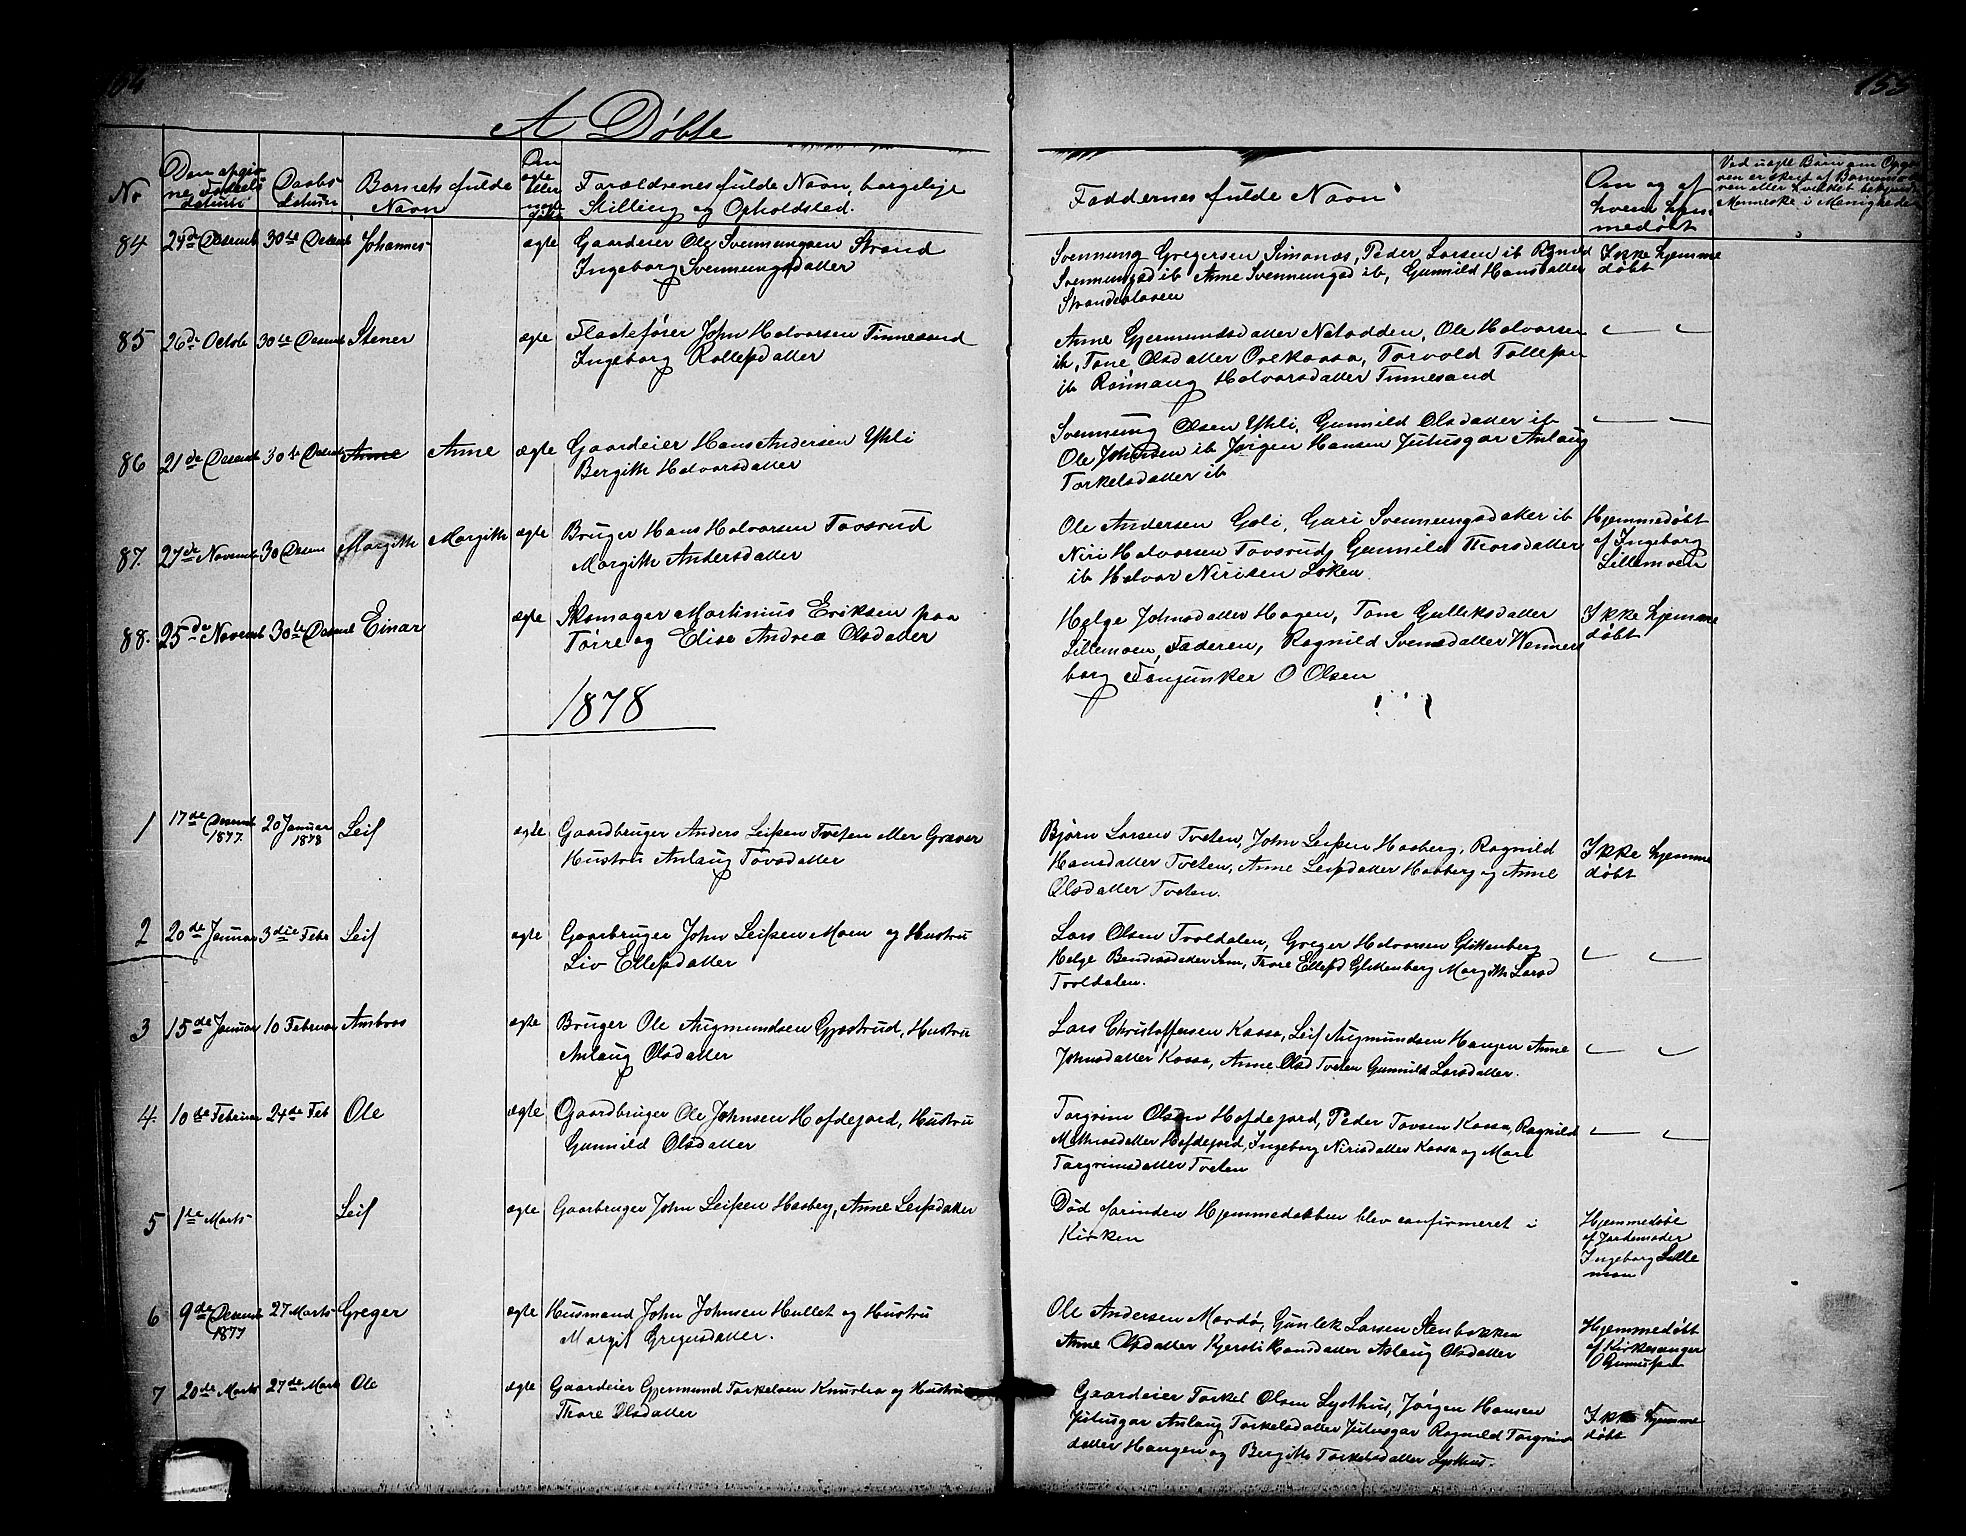 154
155
A Døbte
No
Den opgivne Fødsels Datum
Daabs Datum
Barnets fulde Navn
Om ægte eller uægte født
Forældrenes fulde Navn, borgelige Stilling og Opholdsted.
Faddernes fulde Navn
Om og af hvem hjemmedøbt
84 29de Desemb 30te Desemb Johannes ægte Gaardeier Ole Svennungsen Strand
Ingeborg Svennungsdatter
Svennung Gregersen Simonæs, Peder Larsen ib Ragnild
Svennungsd ib Anne Svennungsd ib, Gunnild Hansdatter
Strandestaven
Ikke hjemme
døbt
85 26de Octob 30te Desemb Stener ægte Flaatefører John Halvorsen Tinnesand
Ingeborg Rollefsdatter
Anne Gjermundsdatter Notodden, Ole Halvorsen
ib, Tone Olsdatter Ovekaasa, Torvald Tollefsen
ib Rønnaug Halvorsdatter Tinnesand
86 21de Desemb 30te Desemb Anne Anne ægte Gaardeier Hans Andersen Ytli
Bergith Halvorsdatter
Svennung Olsen Ytli, Gunnild Olsdatter ib
Ole Johnsen ib Jørgen Hansen Jutusgar Anlaug
Torkelsdatter ib
87. 27de November 30 Desem Margith Margith ægte Bruger Hans Halvorsen Tovsrud
Margith Andersdatter
Ole Andersen Goli, Gari Svennungsdatter ib
Niri Halvorsen Tovsrud, Gunnild Thorsdatter
ib Halvor Nirisen Løken
Hjemmedøbt
af Ingeborg
Lillemoen
88. 25de Novemb 30te Desemb Einar ægte Skomager Martinius Eriksen paa
Tørre og Elise Andrea Olsdatter
Helge Johnsdatter Hagen, Tone Gulleksdatter
Lillemoen, Faderen, Ragnild Svensdatter Wenners
borg Fanjunker O Olsen
Ikke hjemme
døbt
1878
1 17de Desemb 1877. 20 Januar 1878 Leif ægte Gaardbruger Anders Leifsen Tveten eller Graver
Hustru Anlaug Tovsdatter
Bjørn Larsen Tveten, John Leifsen Haaberg, Ragnild
Hansdatter Tveten, Anne Leifsdatter Haaberg og Anne
Olsdatter Tveten.
Ikke hjemme
døbt
2 20de Januar 3die Febr Leif ægte Gaarbruger John Leifsen Moen og Hustru
Liv Ellefsdatter
Lars Olsen Tvoldalen, Greger Halvorsen Glittenberg
Helge Sem, Thore Ellefsd Glittenberg Margith Larsd
Tvoldalen.
3 15de Januar 10 Februar Ambros ægte Bruger Ole Augmundsen Gjøstrud, Hustru
Anlaug Olsdatter
Lars Christoffersen Kaasa, Leif Augmundsen Haugen Anne
Johnsdatter Kaasa, Anne Olsd Tveten Gunnild Larsdatter.
4. 10de Februar 24de Feb Ole ægte Gaardbruger Ole Johnsen Hofdejord, Hustru
Gunnild Olsdatter
Torgrim Olsen Hofdejord, Peder Tovsen Kaasa, Ragnild
Mathisdatter Hofdejord, Ingeborg Nirisdatter Kaasa og Mari
Torgrimsdatter Tveten
5 1ste Marts Leif ægte Gaarbruger John Leifsen Haaberg, Anne Leifsdatter
Død forinden Hjemmedaaben blev confirmeret i
Kirken
Hjemmedøbt
af Jordemoder
Ingeborg Lille
moen
6 9de Desemb 1877 27 Marts Greger ægte Husmand John Johnsen Hullet og Hustru
Margit Gregersdatter.
Ole Andersen Mordø, Gunlek Larsen Stenbakken
Anne Olsdatter Kjersti Hansdatter Aslaug Olsdatter
Hjemmedøbt
af Kirkesanger
O Gunnufsen
7 20de Marts 27de Mart Ole ægte Gaardeier Gjermund Torkelsen Knurlia og Hustru
Thore Olsdatter
Gaardeier Torkel Olsen Lysthus, Jørgen Hansen
Jutusgar Anlaug Torkelsdatter Jutusgar Ragnild Torgrims
datter Haugen og Bergith Torkelsdatter Lysthus.
Ikke hjemme
døbt